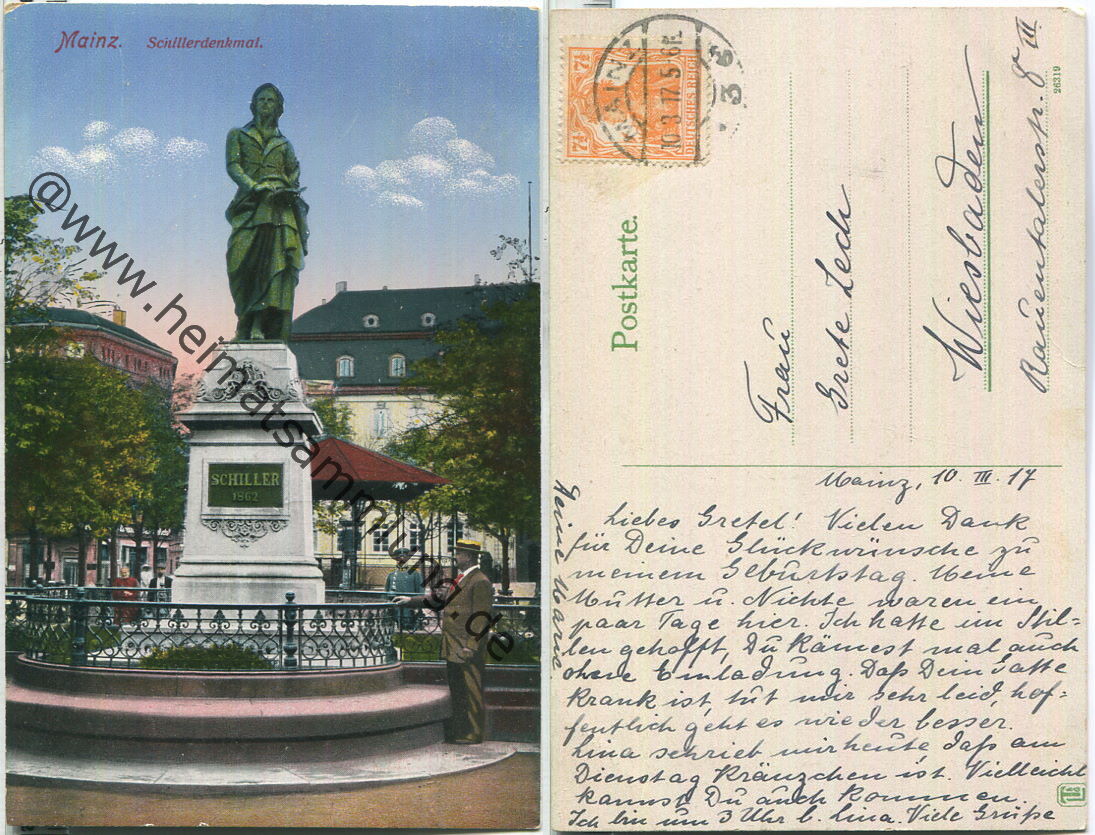 Mainz. Schillerdenkmal.
SCHILLER
1862
@www.heimatsammlung.de
7½ DEUTSCHES REICH 7½
MAINZ
10.3.17.5-6N.
* 3 *
Postkarte.
Frau
Grete Lech
Wiesbaden
Rauentalerstr. 8 III
26319
Mainz, 10. III. 17
Liebes Gretel! Vielen Dank
für Deine Glückwünsche zu
meinem Geburtstag. Meine
Mutter u. Nichte waren ein
paar Tage hier. Ich hatte im Stil-
len gehofft, Du kämest mal auch
ohne Einladung. Daß Dein Gatte
krank ist, tut mir sehr leid, hof-
fentlich geht es wieder besser.
Lina schrieb mir heute, daß am
Dienstag Kränzchen ist. Vielleicht
kannst Du auch kommen.
Ich bin um 3 Uhr b. Lina. Viele Grüße
Deine Marie